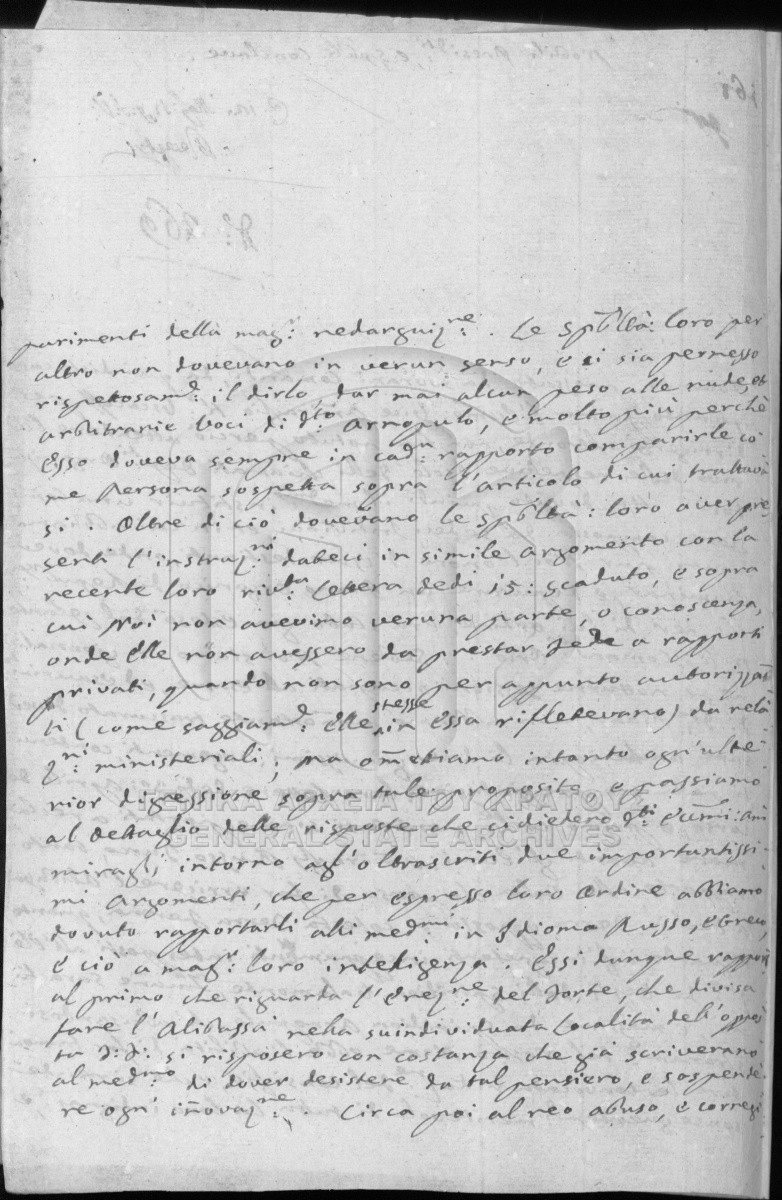 parimenti della mag:r redarguiz:ne . Le Sp:bltà: loro per
altro non dovevano in verun senso, e ci sia permesso
rispettosam:e il dirlo, dar mai alcun peso alle nude, et
arbitrarie voci di d:to Arropulo, e molto più perchè
Esso doveva sempre in cad:n rapporto comparirle co
me Persona sospetta sopra l'articolo di cui trattava
si : Oltre di ciò dovevano le Sp:bltà: loro aver pre
senti l'instruz:ni dateci in simile argomento con la
recente loro riv:ta Lettera dedi 15: scaduto, e sopra
cui Noi non avevimo veruna parte, o conoscenza,
onde Elle non avessero da prestar fede a rapporti
privati, quando non sono per appunto autorizza
ti (come saggiam:e Elle stesse in Essa rifletevano) da rela
z:ni ministeriali; ma omettiamo intanto ogn'ulte
rior digressione sopra tale proposito, e passiamo
al dettaglio delle risposte che ci diedero q:ti Eccmi: Am
miragli intorno agl'oltrascriti due importantissi
mi Argomenti, che per espresso loro Ordine abbiamo
dovuto rapportarli alli med:mi in Idioma Russo, e Greco
e ciò a mag:r loro inteligenza . Essi dunque rapport
al primo che riguarda l'Erez:ne del Forte, che divisa
fare l'Alibassà nella suindividuata Località dell'oppos
ta T: F: si risposero con costanza che già scriverano
al med:mo di dover desistere da tal pensiero, e sospende
re ogni innovaz:ne . Circa poi al reo abuso, e corregi
N:o 269
ΓΕΝΙΚΑ ΑΡΧΕΙΑ ΤΟΥ ΚΡΑΤΟΥΣ
GENERAL STATE ARCHIVES